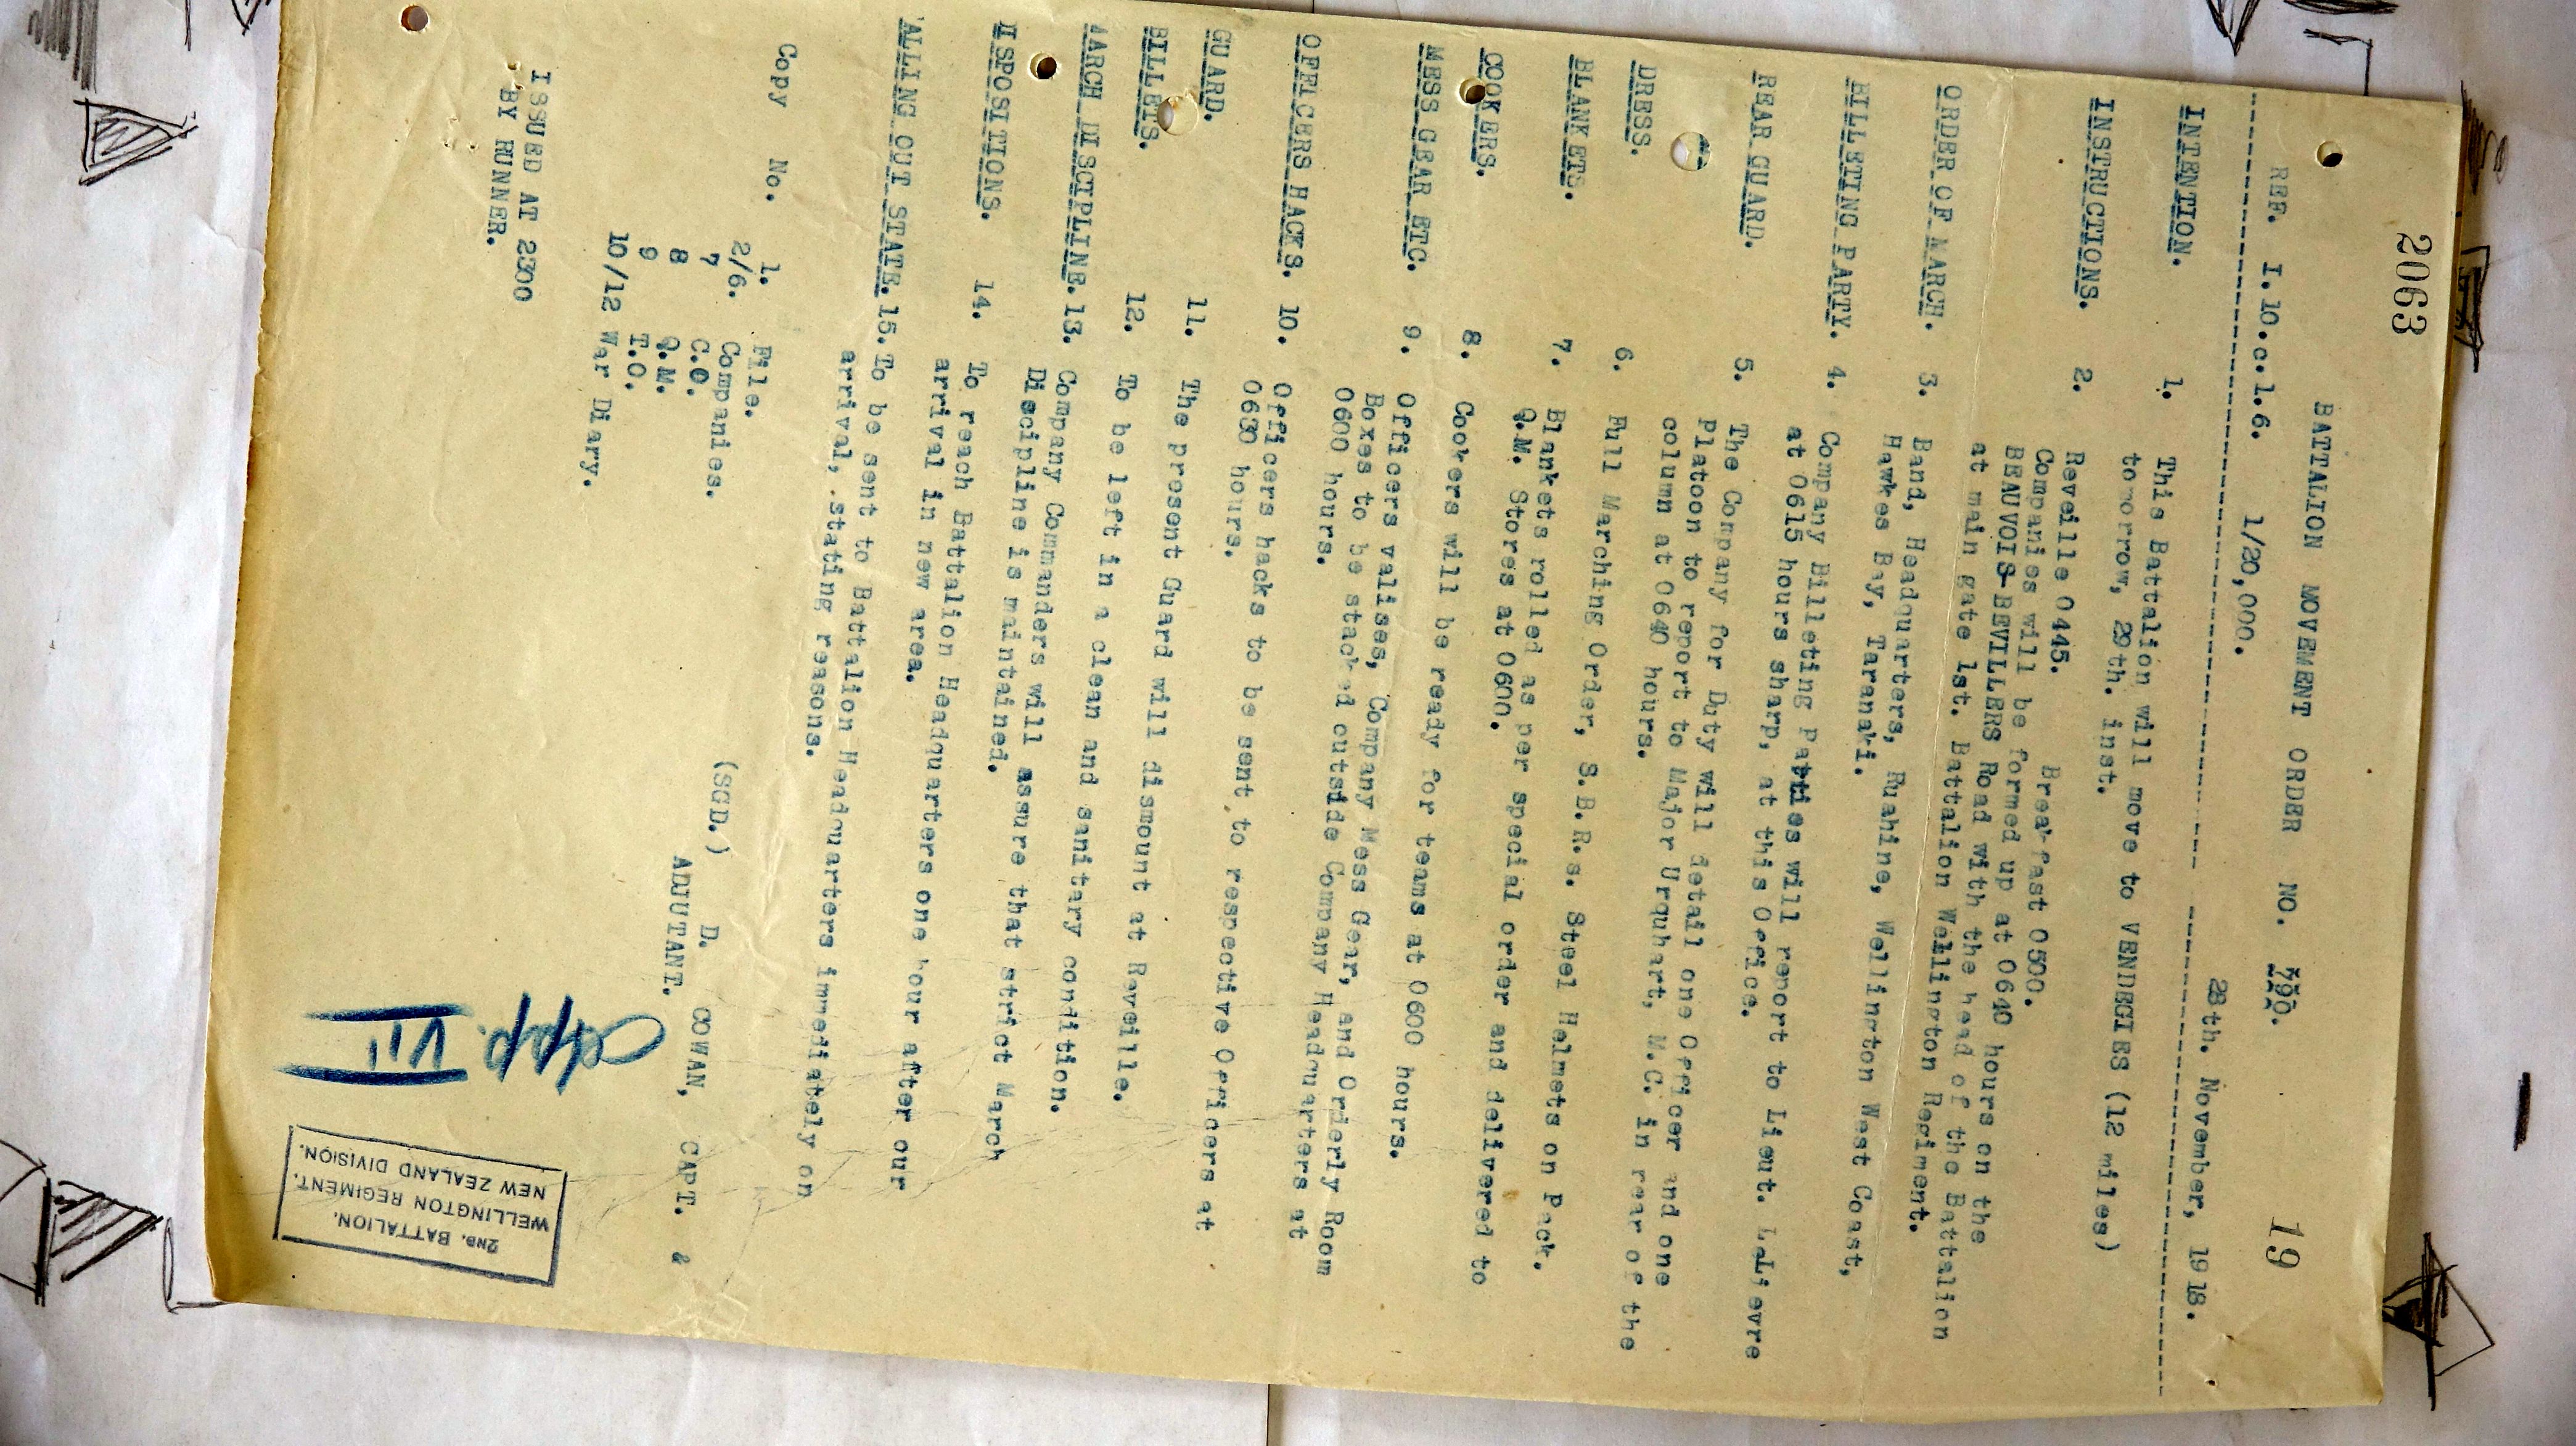 2063
19
BATTALION MOVEMENT ORDER NO. 790.
REF. I.10.c.1.6. 1/20,000.
28th. November, 1918.
INTENTION. 1. This Battalion will move to VENDEGIES (12 miles)
tomorrow, 29th. inst.
INSTRUCTIONS. 2. Reveille 0445. Breakfast 0500.
Companies will be formed up at 0640 hours on the
BEAUVOIS-BEVILLERS Road with the head of the Battalion
at main gate 1st. Battalion Wellington Regiment.
ORDER OF MARCH. 3. Band, Headquarters, Ruahine, Wellington West Coast,
Hawkes Bay, Taranaki.
BILLETING PARTY. 4. Company Billeting Parties will report to Lieut. LeLievre
at 0615 hours sharp, at this Office.
REAR GUARD. 5. The Company for Duty will detail one Officer and one
Platoon to report to Major Urquhart, M.C. in rear of the
column at 0640 hours.
DRESS. 6. Full Marching Order, S.B.R.s. Steel Helmets on Pack.
BLANKETS. 7. Blankets rolled as per special order and delivered to
Q.M. Stores at 0600.
COOKERS. 8. Cookers will be ready for teams at 0600 hours.
MESS GEAR ETC. 9. Officers valises, Company Mess Gear, and Orderly Room
Boxes to be stacked outside Company Headquarters at
0600 hours.
OFFICERS HACKS. 10. Officers hacks to be sent to respective Officers at
0630 hours.
GUARD. 11. The present Guard will dismount at Reveille.
BILLETS. 12. To be left in a clean and sanitary condition.
MARCH DISCIPLINE. 13. Company Commanders will assure that strict March
Discipline is maintained.
DISPOSITIONS. 14. To reach Battalion Headquarters one hour after our
arrival in new area.
FALLING OUT STATE. 15. To be sent to Battalion Headquarters immediately on
arrival, stating reasons.
Copy No. 1. File.
2/6. Companies.
7 C.O.
8 Q.M.
9 T.O.
10/12 War Diary.
(SGD.) D. COWAN, CAPT. &
ADJUTANT.
ISSUED AT 2300
BY RUNNER.
App. VII
2ND. BATTALION.
WELLINGTON REGIMENT.
NEW ZEALAND DIVISION.